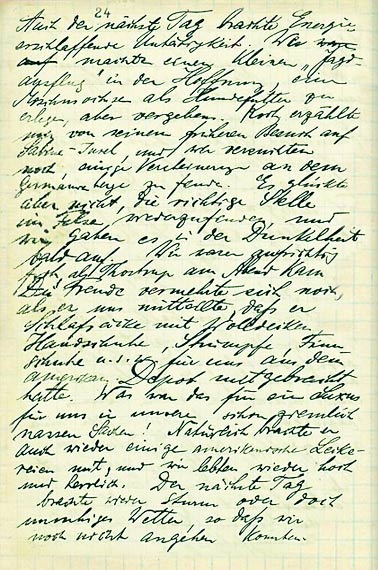 24
Auch der nächste Tag brachte Energie-
erschlaffende Untätigkeit. Wir
machten einen kleinen „Jagd-
ausflug" in der Hoffnung, einen
Moschusochsen als Hundefutter zu
erlegen, aber vergebens. Koch erzählte
von seinem früheren Besuch auf
Sabine-Insel, und wir versuchten
noch, einige Versteinerungen an dem
Germaniaberge zu finden. Es glückte
aber nicht, die richtige Stelle
im Felse wiederzufinden und
wir gaben es in der Dunkelheit
bald auf. Wir waren
froh, als Thostrup am Abend kam
Die Freude vermehrte sich noch,
als er uns mitteilte, daß er
Schlafsäcke mit Wolldecken
Handschuhe, Strümpfe,
schuhe u.s.w. für uns aus dem
Depot mitgebracht
hatte. Was war das für ein Luxus
für uns in unsere schon ziemlich
nassen Sachen! Natürlich brachte er
auch wieder einige amerikanische Lecke-
reien mit, und wir lebten wieder hoch
und herrlich. Der nächste Tag
brachte wieder Sturm oder doch
unruhiges Wetter, so daß wir
noch nicht angehen konnten.